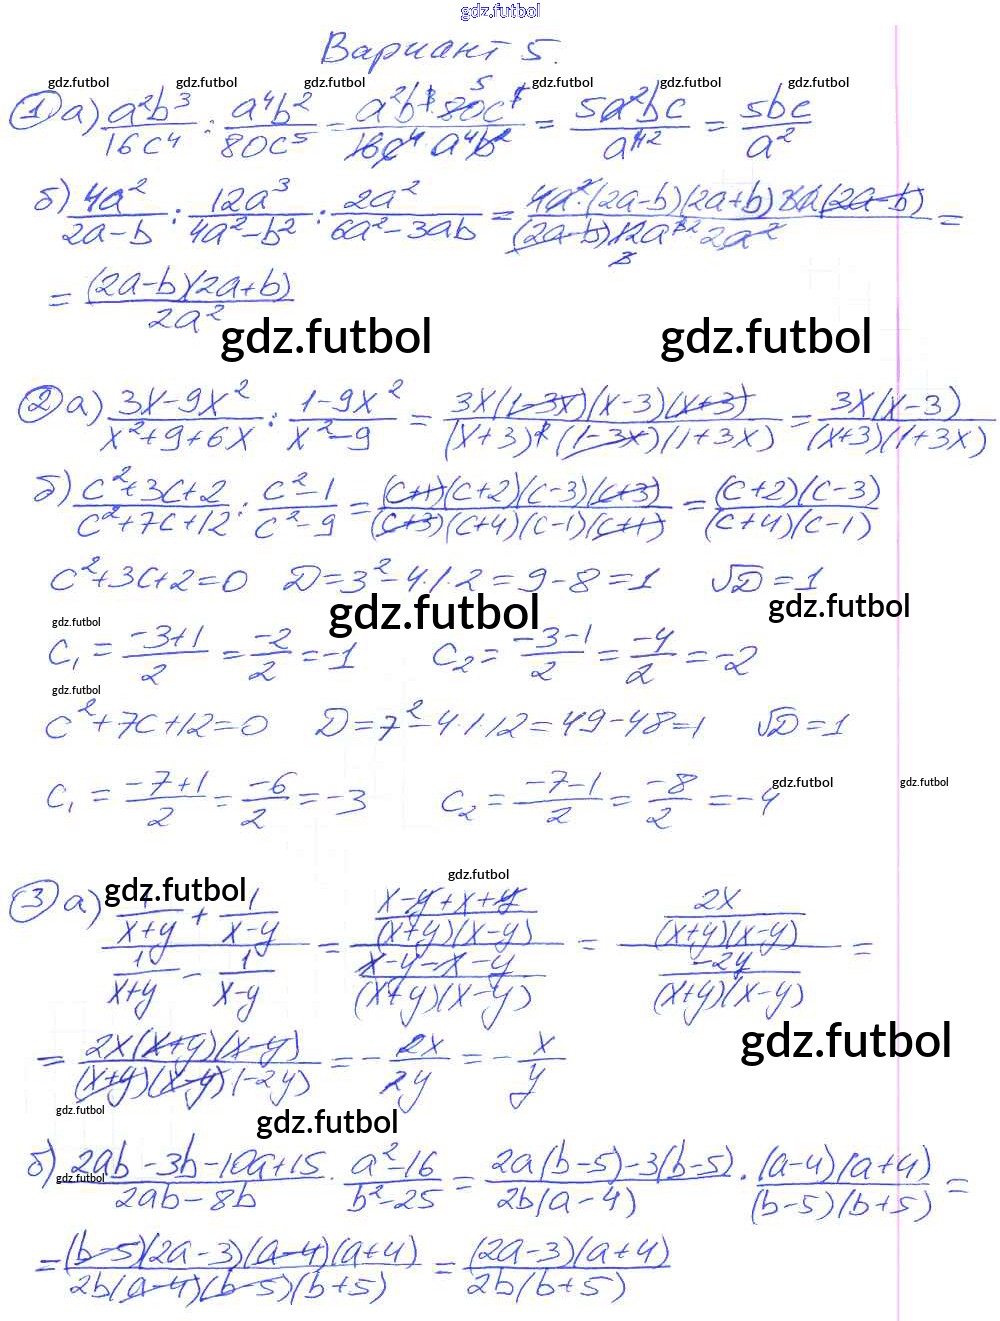 gdz.futbol
Вариант 5.
gdz.futbol gdz.futbol gdz.futbol gdz.futbol gdz.futbol gdz.futbol
1 а) a²b³/16c⁴ : a⁴b²/80c⁵ = a²b³·80c⁵/16c⁴·a⁴b² = 5a²bc/a⁴ = 5bc/a²
б) 4a²/2a-b : 12a³/4a²-b² : 2a²/6a²-3ab = 4a²·(2a-b)(2a+b)3a(2a-b)/(2a-b)12a³·2a² =
= (2a-b)(2a+b)/2a²
gdz.futbol gdz.futbol
2 а) 3x-9x²/x²+9+6x : 1-9x²/x²-9 = 3x(1-3x)(x-3)(x+3)/(x+3)²(1-3x)(1+3x) = 3x(x-3)/(x+3)(1+3x)
б) c²+3c+2/c²+7c+12 : c²-1/c²-9 = (c+1)(c+2)(c-3)(c+3)/(c+3)(c+4)(c-1)(c+1) = (c+2)(c-3)/(c+4)(c-1)
c²+3c+2=0 D=3²-4·1·2=9-8=1 √D=1
gdz.futbol gdz.futbol gdz.futbol
c₁ = -3+1/2 = -2/2 = -1 c₂ = -3-1/2 = -4/2 = -2
gdz.futbol
c²+7c+12=0 D=7²-4·1·12=49-48=1 √D=1
c₁ = -7+1/2 = -6/2 = -3 c₂ = -7-1/2 = -8/2 = -4
gdz.futbol gdz.futbol
gdz.futbol gdz.futbol
3 а) (1/x+y + 1/x-y)/(1/x+y - 1/x-y) = (x-y+x+y/(x+y)(x-y))/(x-y-x-y/(x+y)(x-y)) = (2x/(x+y)(x-y))/(-2y/(x+y)(x-y)) =
gdz.futbol
= 2x(x+y)(x-y)/(x+y)(x-y)(-2y) = -2x/2y = -x/y
gdz.futbol gdz.futbol
б) 2ab-3b-10a+15/2ab-8b · a²-16/b²-25 = 2a(b-5)-3(b-5)/2b(a-4) · (a-4)(a+4)/(b-5)(b+5) =
gdz.futbol
= (b-5)(2a-3)(a-4)(a+4)/2b(a-4)(b-5)(b+5) = (2a-3)(a+4)/2b(b+5)